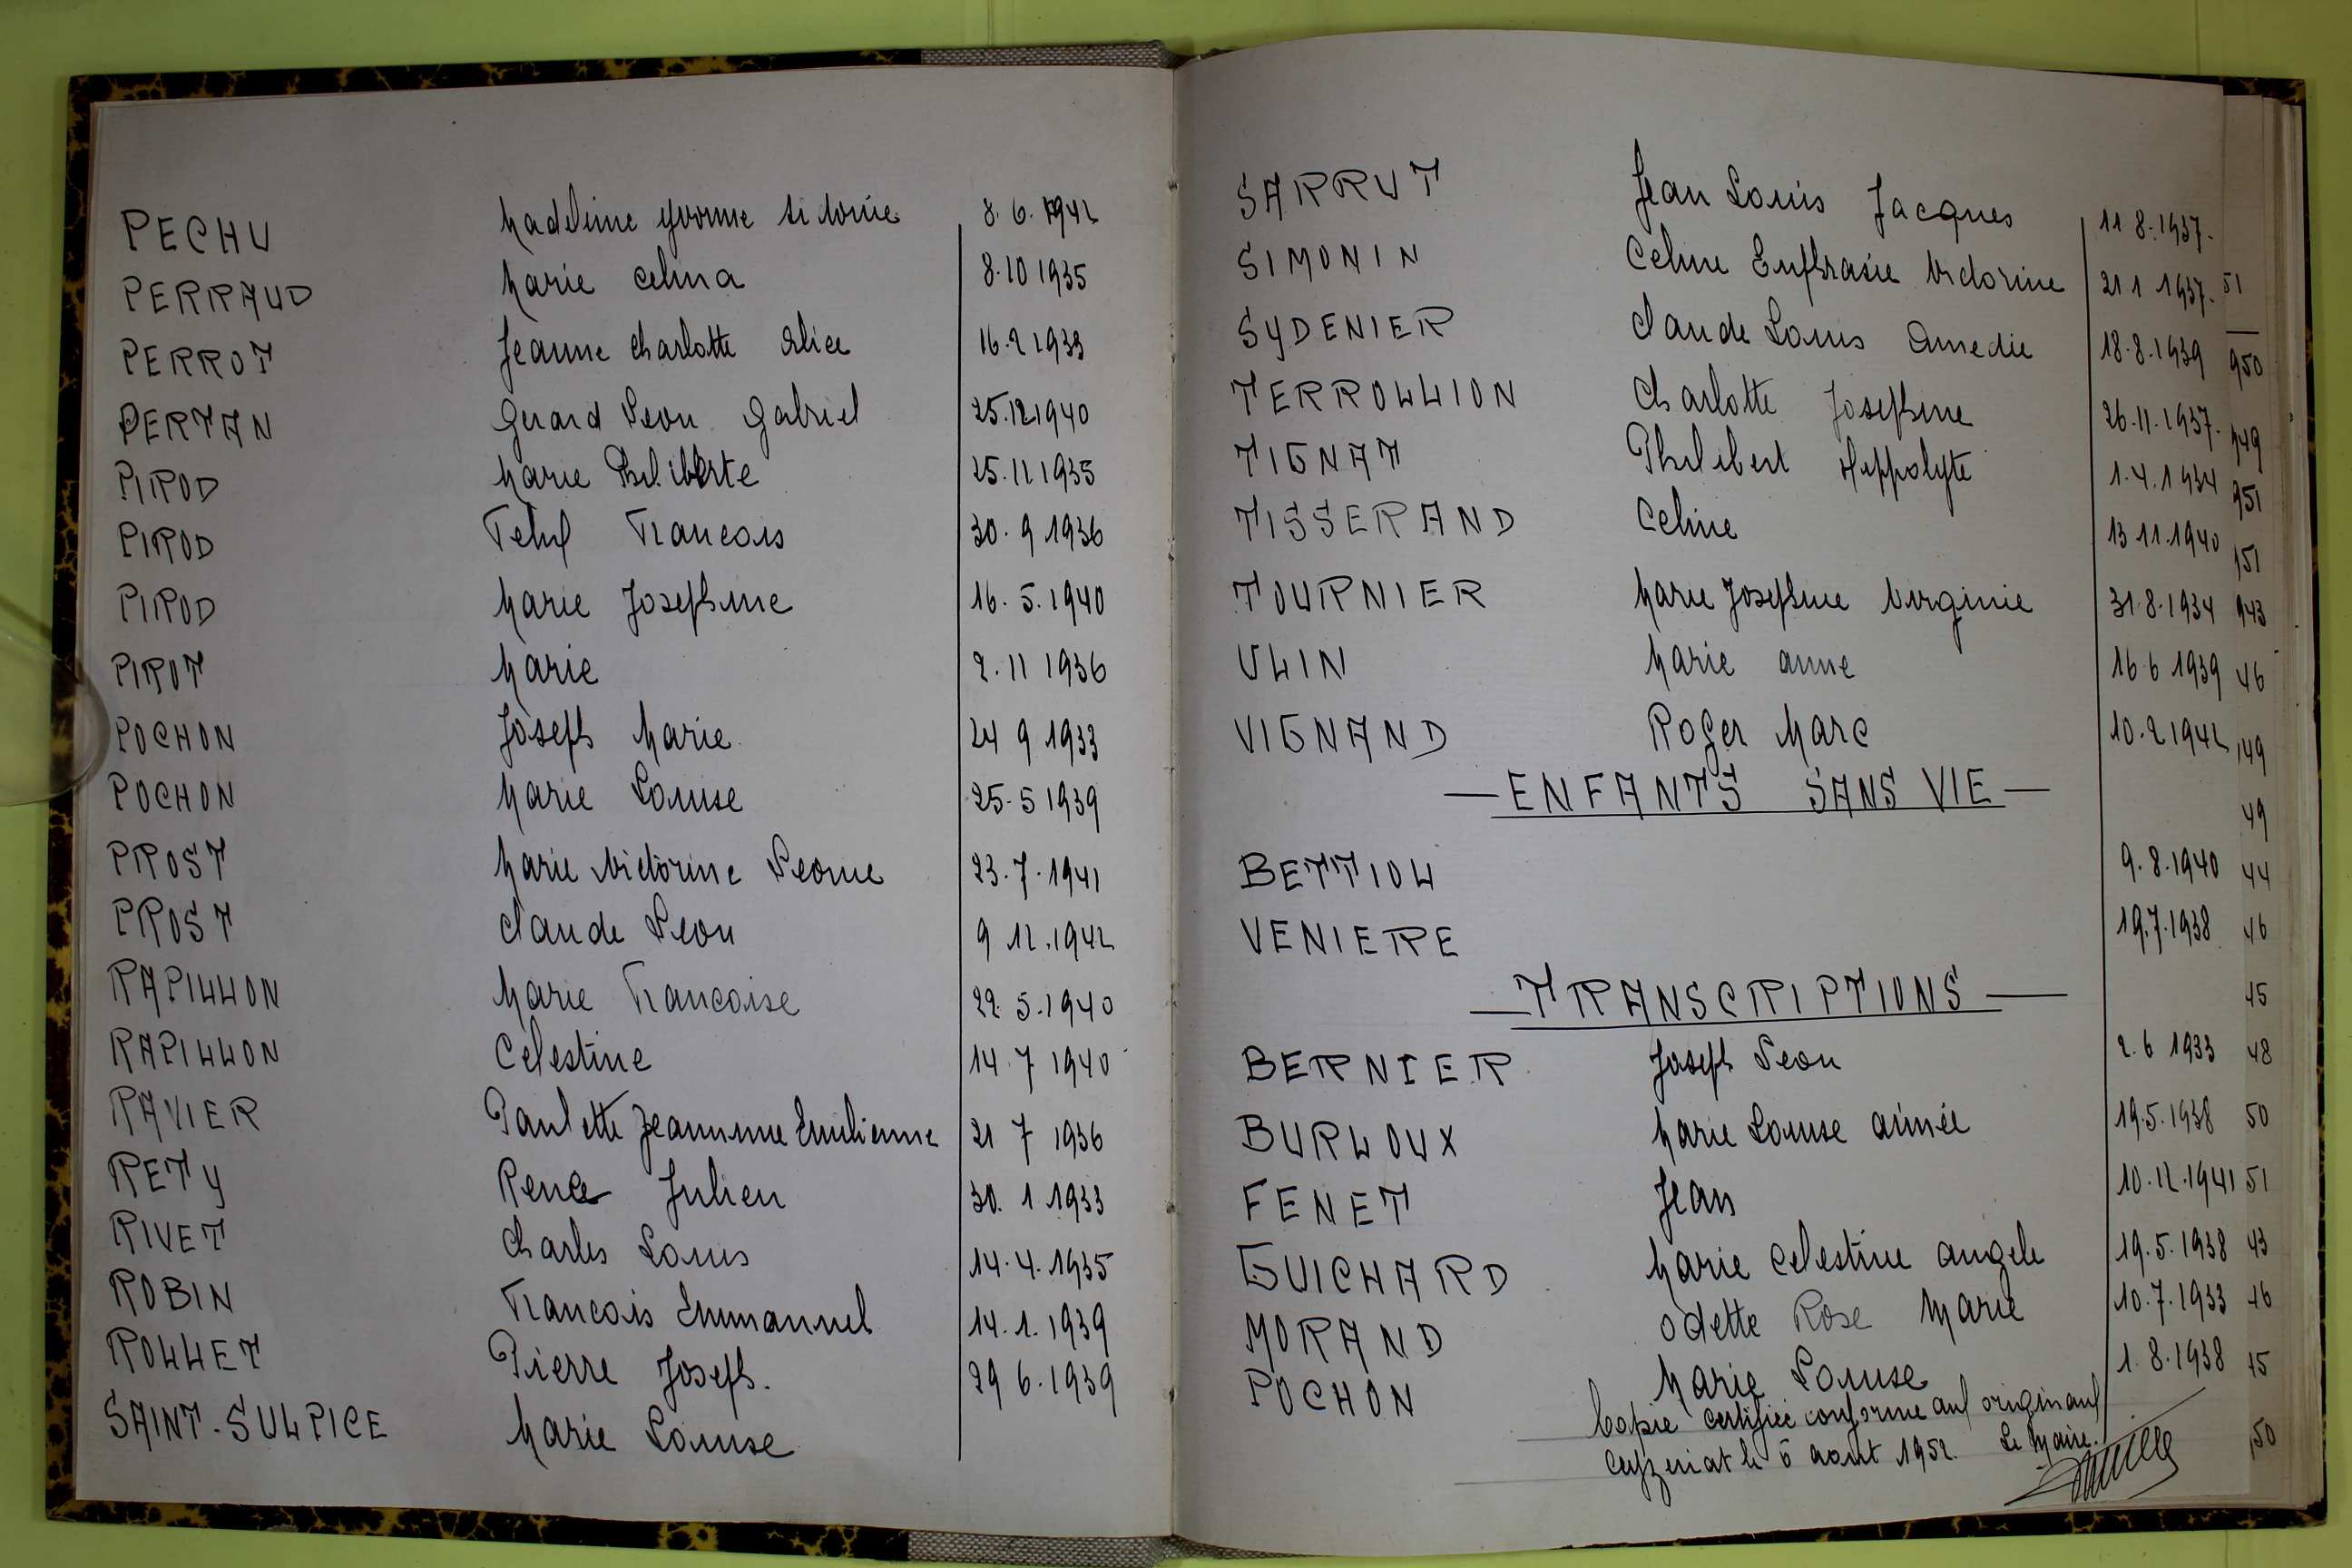 PECHU Madeleine Yvonne Sidonie 8.6.1942
PERRAUD Marie Celina 8.10 1935
PERROT Jeanne Charlotte Alice 16.2 1933
PERTAN Gerard Leon Gabriel 25.12 1940
PIROD Marie Philiberte 25.11 1935
PIROD Felix Francois 30.9 1936
PIROD Marie Josephine 16.5.1940
PIROT Marie 2.11 1936
POCHON Joseph Marie 24 9 1933
POCHON Marie Louise 25.5 1939
PROST Marie Victorine Leonie 23.7.1941
PROST Claude Leon 9 12.1942
RAPILLON Marie Francoise 22.5.1940
RAPILLON Celestine 14.7 1940
RAVIER Paulette Jeannine Emilienne 21 7 1936
RETY Rene Julien 30.1 1933
RIVET Charles Louis 14.4.1935
ROBIN Francois Emmanuel 14.1.1939
ROLLET Pierre Joseph. 29 6.1939
SAINT-SULPICE Marie Louise
SARRUT Jean Louis Jacques 11 8.1937.
SIMONIN Celine Euphrasie Victorine 21 1 1937.
SYDENIER Claude Louis Amedie 18.8.1939
TERROLLION Charlotte Josephine 26.11.1937.
TIGNAT Philibert Hippolyte 1.4.1934
TISSERAND Celine 13 11.1940
TOURNIER Marie Josephine Virginie 31.8.1934
ULIN Marie Anne 16 6 1939
VIGNAND Roger Marc 10.2 1942
— ENFANTS SANS VIE —
BETTIOL 9.8.1940
VENIERE 19.7.1938
— TRANSCRIPTIONS —
BERNIER Joseph Leon 2.6 1933
BURLOUX Marie Louise Aimée 19.5.1938
FENET Jean 10.12.1941
GUICHARD Marie Celestine Angele 19.5.1938
MORAND Odette Rose Marie 10.7.1933
POCHON Marie Louise 1.8.1938
Copie certifiée conforme aux originaux
Cuyzeriat le 6 aout 1952. Le Maire.
51
950
949
951
951
943
46
49
49
44
46
45
48
50
51
43
46
45
50